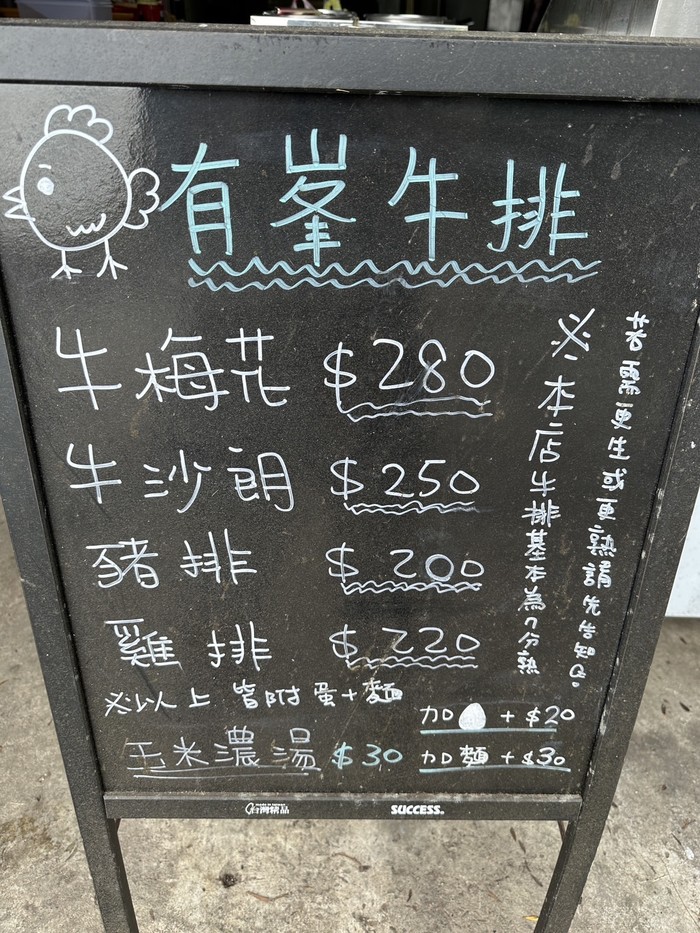 有峯牛排
牛梅花 $280
牛沙朗 $250
豬排 $200
雞排 $220
※以上皆附蛋+麵
玉米濃湯 $30
加🥚+$20
加麵+$30
※本店牛排基本為7分熟
若需更生或更熟請先告知。
台灣精品
SUCCESS